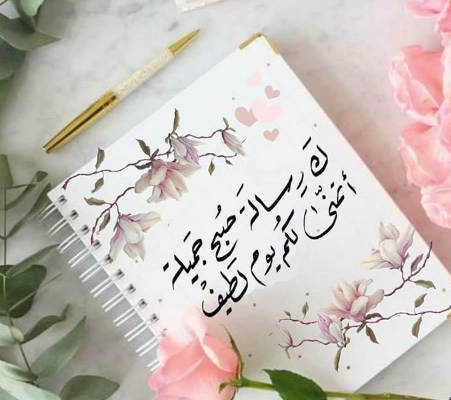 كَ رِسالة صُبح جَميلة
أتمنّىٰ لكُم يوم لَطيفْ